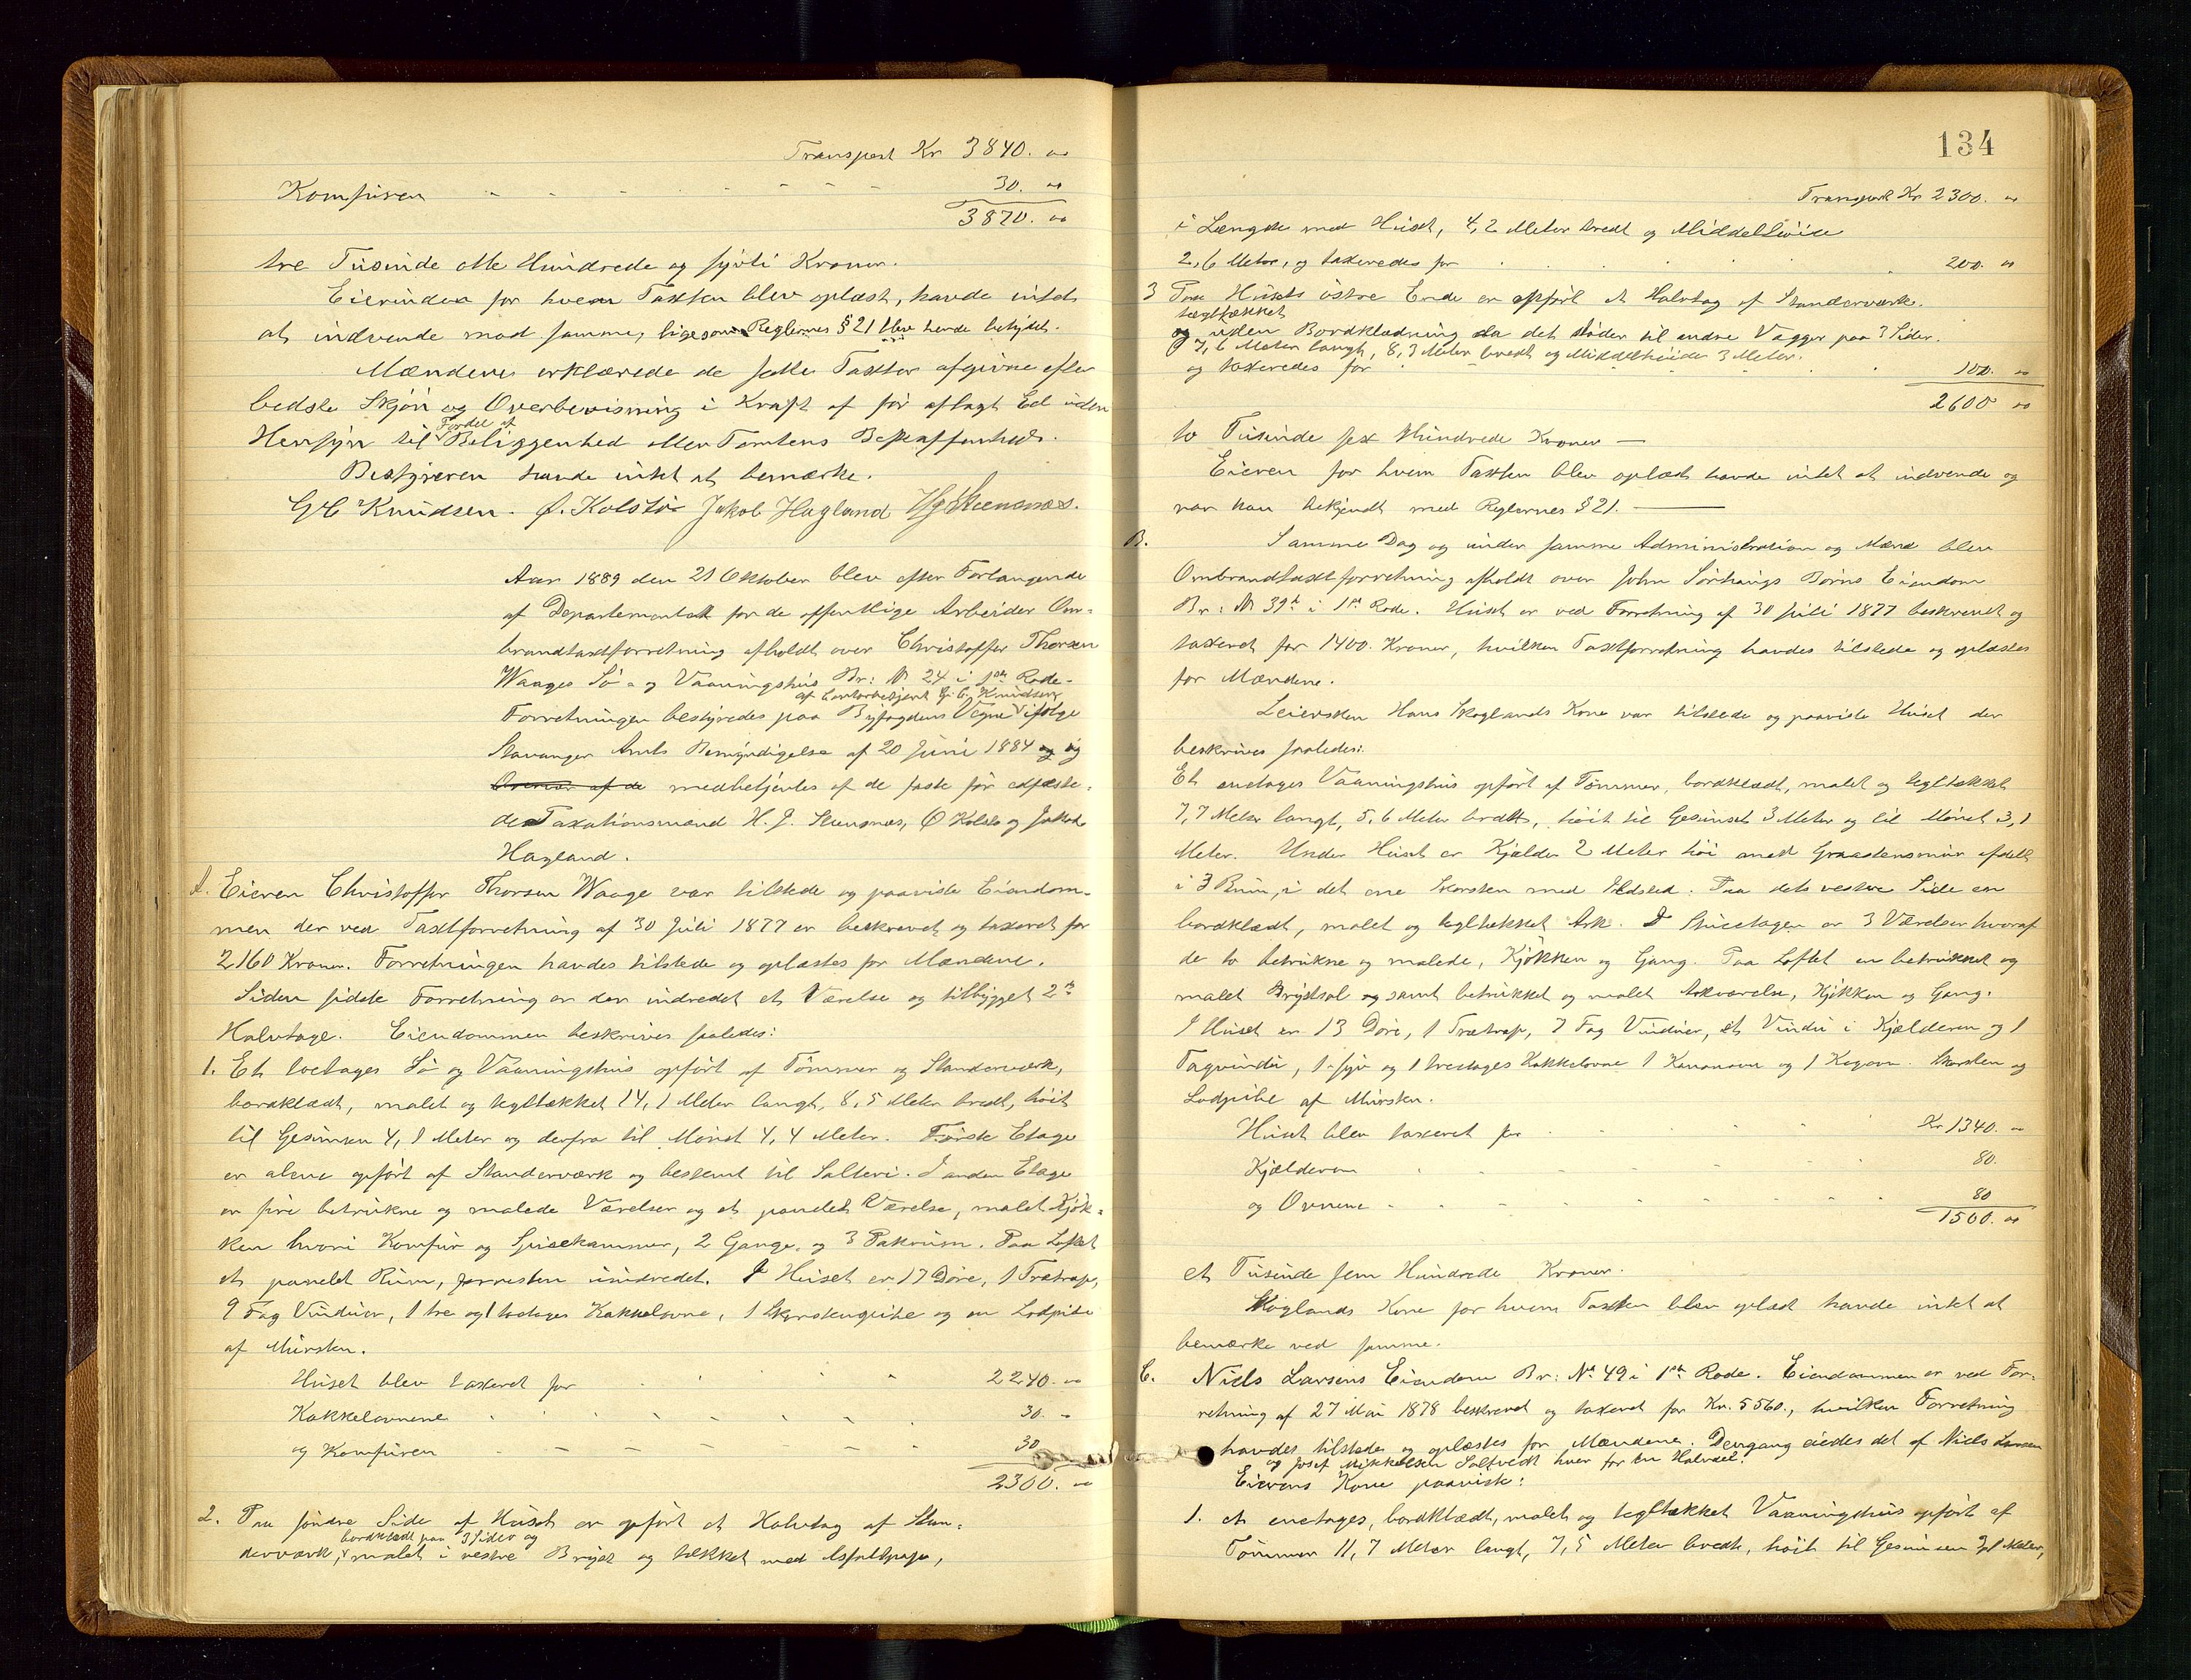 Transport Kr 3840. "
Komfuren - - - - - - - - 30. "
3870. "
tre Tusinde otte Hundrede og sytti Kroner.
Eierinden for hvem Taxten blev oplæst, havde intet
at indvende mod samme, ligesom Reglernes § 21 blev hende betydet.
Mændene erklærede de satte Taxter afgivne efter
bedste Skjøn og Overbevisning i Kraft af før aflagt Ed uden
Hensyn til Fordel af Beliggenhed eller Tomtens Beskaffenhed.
Bestyreren havde intet at bemærke.
G C Knudsen. O. Kolstø Jakob Hagland HJ Steensnæs.
Aar 1889 den 21 Oktober blev efter Forlangende
af Departementet for de offentlige Arbeider Om-
brandtaxtforretning afholdt over Christoffer Thorsen
Waages Sø- og Vaaningshus Br: № 24 i 1ste Rode.
Forretningen bestyredes paa Byfogdens Vegne af Contorbetjent G. C. Knudsen ifølge
Stavanger Amts Bemyndigelse af 20 Juni 1884 og
medbetjentes af de faste før edfæste-
de Taxationsmænd H. J. Steensnæs, O Kolstø og Jakob
Hagland.
A. Eieren Christoffer Thorsen Waage var tilstede og paaviste Eiendom-
men der ved Taxtforretning af 30 Juli 1877 er beskrevet og taxeret for
2160 Kroner. Forretningen havdes tilstede og oplæstes for Mændene.
Siden sidste Forretning er der indredet et Værelse og tilbygget 2de
Halvtage. Eiendommen beskrives saaledes:
1. Et toetages Sø og Vaaningshus opført af Tømmer og Standerværk,
bordklædt, malet og tegltækket 14,1 Meter langt, 8,5 Meter bredt, høit
til Gesimsen 4,1 Meter og derfra til Mønet 4,4 Meter. Første Etage
er alene opført af Standerværk og bestemt til Salteri. I anden Etage
er fire betrukne og malede Værelser og et panelet Værelse, malet Kjøk-
ken hvori Komfur og Spisekammer, 2 Gange og 3 Pakrum. Paa Loftet
et panelet Rum, forresten uindredet. I Huset er 17 Døre, 1 Trætrap,
9 Fag Vinduer, 1 tre og 1 toetages Kakkelovne, 1 Skorstenspibe og en Lodpibe
af Mursten.
Huset blev taxeret for 2240. "
Kakkelovnene 30. "
og Komfuren 30
2300. "
2. Paa søndre Side af Huset er opført et Halvtag af Stan-
derværk, bordklædt paa 3 Sider og malet i vestre Bryst og tækket med Asfaltpap,
134
Transport Kr 2300. "
i Længde med Huset, 4,2 Meter bredt og Middelhøide
2,6 Meter, og taxeredes for 200. "
3 Paa Husets østre Ende er opført et Halvtag af Standerværk.
tegltækket
og uden Bordklædning da det støder til andre Vægger paa 3 Sider.
7,6 Meter langt, 8,3 Meter bredt og Middelhøide 3 Meter.
og taxeredes for 100. "
2600 "
to Tusinde sex Hundrede Kroner —
Eieren for hvem Taxten blev oplæst havde intet at indvende og
var han bekjendt med Reglernes § 21. —
B. Samme Dag og under samme Administration og Mænd blev
Ombrandtaxtforretning afholdt over John Sørhaugs Børns Eiendom
Br: № 39b i 1ste Rode. Huset er ved Forretning af 30 Juli 1877 beskrevet og
taxeret for 1400. Kroner, hvilken Taxtforretning havdes tilstede og oplæstes
for Mændene.
Leiersken Hans Skoglands Kone var tilstede og paaviste Huset der
beskrives saaledes:
Et enetages Vaaningshus opført af Tømmer, bordklædt, malet og tegltækket
7,7 Meter langt, 5,6 Meter bredt, høit til Gesimset 3 Meter og til Mønet 3,1
Meter. Under Huset er Kjælder 2 Meter høi med Graastensmur afdelt
i 3 Rum, i det ene Skorsten med Ildsted. Paa dets vestre Side en
bordklædt, malet og tegltækket Ark. I Stueetagen er 3 Værelser hvoraf
de to betrukne og malede, Kjøkken og Gang. Paa Loftet en betrukket og
malet Brystsal og samt betrukket og malet Arkværelse, Kjøkken og Gang.
I Huset er 13 Døre, 1 Trætrap, 7 Fag Vinduer, et Vindu i Kjælderen og 1
Tagvindu, 1 og 1 treetages Kakkelovne 1 Kanonovn og 1 Kogovn. Skorsten og
Lodpibe af Mursten.
Huset blev taxeret for Kr 1340. "
Kjælderen 80.
og Ovnene 80
1500. "
et Tusinde fem Hundrede Kroner.
Skoglands Kone for hvem Taxten blev oplæst havde intet at
bemærke ved samme.
C. Niels Larsens Eiendom Br: № 49 i 1ste Rode. Eiendommen er ved For-
retning af 27 Mai 1878 beskrevet og taxeret for Kr. 5560., hvilken Forretning
havdes tilstede og oplæstes for Mændene. Dengang eiedes det af Niels Larsen
og Josef Mikkelsen Saltvedt hver for en Halvdel.
Eierens Kone paaviste:
1. et enetages, bordklædt, malet og tegltækket Vaaningshus opført af
Tømmer 11,7 Meter langt, 7,5 Meter bredt, høit til Gesimsen Meter,